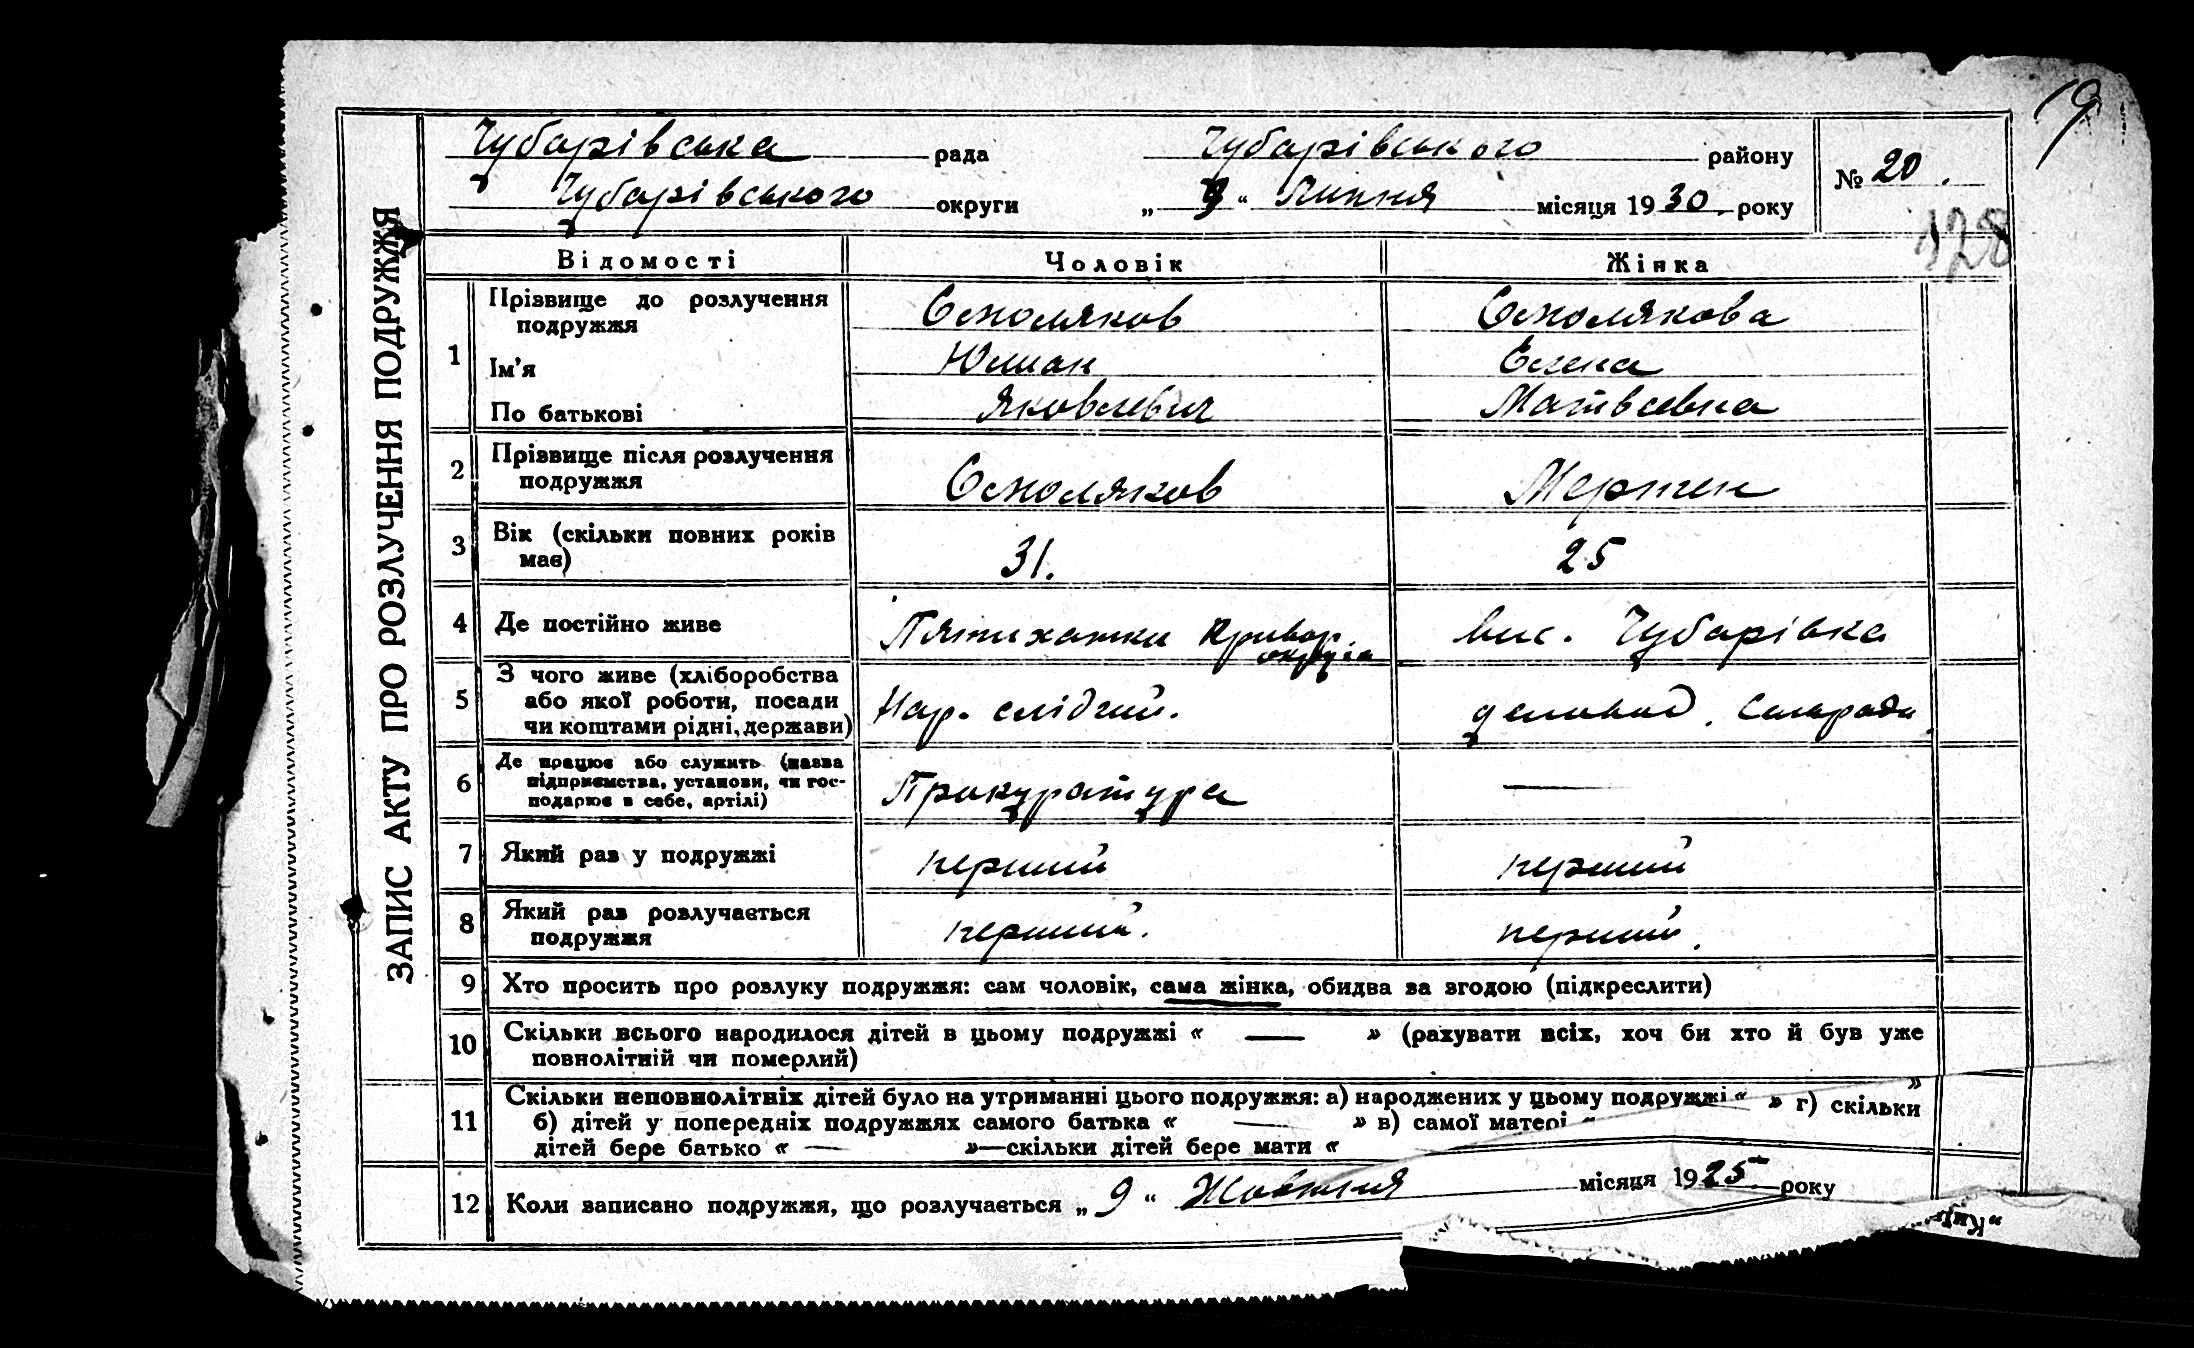 ЗАПИС АКТУ ПРО РОЗЛУЧЕННЯ ПОДРУЖЖЯ
19
Чубарівська рада Чубарівського району № 20.
Чубарівського округи „ 9 “ Липня місяця 1930. року
128
Відомості Чоловік Жінка
1 Прізвище до розлучення подружжя Смоляков Смолякова
Ім'я Юлиан Елена
По батькові Яковлевич Матвеевна
2 Прізвище після розлучення подружжя Смоляков
3 Вік (скільки повних років має) 31. 25
4 Де постійно живе Пятихатки Кривор. округа вис. Чубарівка
5 З чого живе (хліборобства або якої роботи, посади чи коштами рідні, держави) Нар. слідчий.
6 Де працює або служить (назва підприємства, установи, чи господарює в себе, артілі) Прокуратура —
7 Який раз у подружжі перший перший
8 Який раз розлучається подружжя перший. перший.
9 Хто просить про розлуку подружжя: сам чоловік, сама жінка, обидва за згодою (підкреслити)
10 Скільки всього народилося дітей в цьому подружжі « — » (рахувати всіх, хоч би хто й був уже
повнолітній чи померлий)
11 Скільки неповнолітніх дітей було на утриманні цього подружжя: а) народжених у цьому подружжі « »
б) дітей у попередніх подружжях самого батька « — » в) самої матері « » г) скільки
дітей бере батько « — »—скільки дітей бере мати «
12 Коли записано подружжя, що розлучається „ 9 “ Жовтня місяця 1925 року